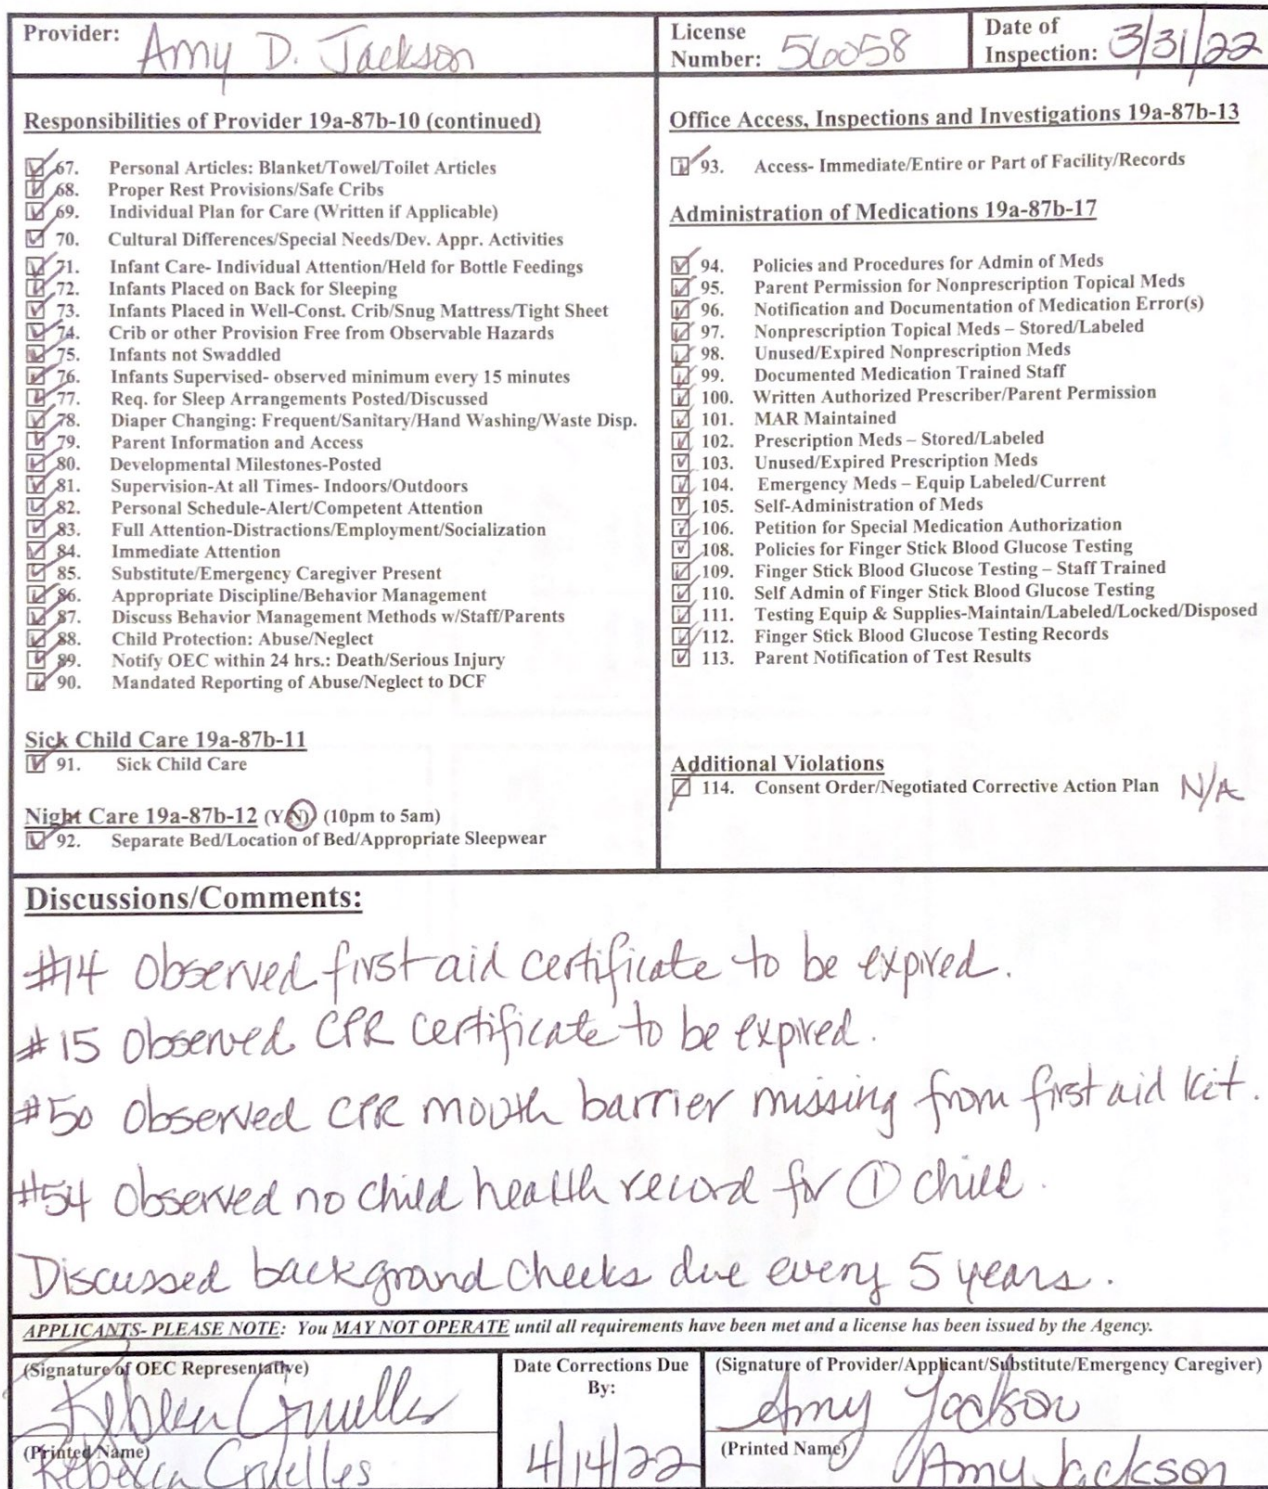 Provider: Amy D. Jackson
License Number: 56058
Date of Inspection: 3/31/22
Responsibilities of Provider 19a-87b-10 (continued)
67. Personal Articles: Blanket/Towel/Toilet Articles
68. Proper Rest Provisions/Safe Cribs
69. Individual Plan for Care (Written if Applicable)
70. Cultural Differences/Special Needs/Dev. Appr. Activities
71. Infant Care- Individual Attention/Held for Bottle Feedings
72. Infants Placed on Back for Sleeping
73. Infants Placed in Well-Const. Crib/Snug Mattress/Tight Sheet
74. Crib or other Provision Free from Observable Hazards
75. Infants not Swaddled
76. Infants Supervised- observed minimum every 15 minutes
77. Req. for Sleep Arrangements Posted/Discussed
78. Diaper Changing: Frequent/Sanitary/Hand Washing/Waste Disp.
79. Parent Information and Access
80. Developmental Milestones-Posted
81. Supervision-At all Times- Indoors/Outdoors
82. Personal Schedule-Alert/Competent Attention
83. Full Attention-Distractions/Employment/Socialization
84. Immediate Attention
85. Substitute/Emergency Caregiver Present
86. Appropriate Discipline/Behavior Management
87. Discuss Behavior Management Methods w/Staff/Parents
88. Child Protection: Abuse/Neglect
89. Notify OEC within 24 hrs.: Death/Serious Injury
90. Mandated Reporting of Abuse/Neglect to DCF
Sick Child Care 19a-87b-11
91. Sick Child Care
Night Care 19a-87b-12 (Y/N) (10pm to 5am)
92. Separate Bed/Location of Bed/Appropriate Sleepwear
Office Access, Inspections and Investigations 19a-87b-13
93. Access- Immediate/Entire or Part of Facility/Records
Administration of Medications 19a-87b-17
94. Policies and Procedures for Admin of Meds
95. Parent Permission for Nonprescription Topical Meds
96. Notification and Documentation of Medication Error(s)
97. Nonprescription Topical Meds – Stored/Labeled
98. Unused/Expired Nonprescription Meds
99. Documented Medication Trained Staff
100. Written Authorized Prescriber/Parent Permission
101. MAR Maintained
102. Prescription Meds – Stored/Labeled
103. Unused/Expired Prescription Meds
104. Emergency Meds – Equip Labeled/Current
105. Self-Administration of Meds
106. Petition for Special Medication Authorization
108. Policies for Finger Stick Blood Glucose Testing
109. Finger Stick Blood Glucose Testing – Staff Trained
110. Self Admin of Finger Stick Blood Glucose Testing
111. Testing Equip & Supplies-Maintain/Labeled/Locked/Disposed
112. Finger Stick Blood Glucose Testing Records
113. Parent Notification of Test Results
Additional Violations
114. Consent Order/Negotiated Corrective Action Plan N/A
Discussions/Comments:
#14 Observed first aid certificate to be expired.
#15 Observed CPR certificate to be expired.
#50 Observed CPR mouth barrier missing from first aid kit.
#54 Observed no child health record for 1 child.
Discussed background checks due every 5 years.
APPLICANTS- PLEASE NOTE: You MAY NOT OPERATE until all requirements have been met and a license has been issued by the Agency.
(Signature of OEC Representative)
Rebecca Cruelles
(Printed Name)
Rebecca Cruelles
Date Corrections Due By:
4/14/22
(Signature of Provider/Applicant/Substitute/Emergency Caregiver)
Amy Jackson
(Printed Name)
Amy Jackson